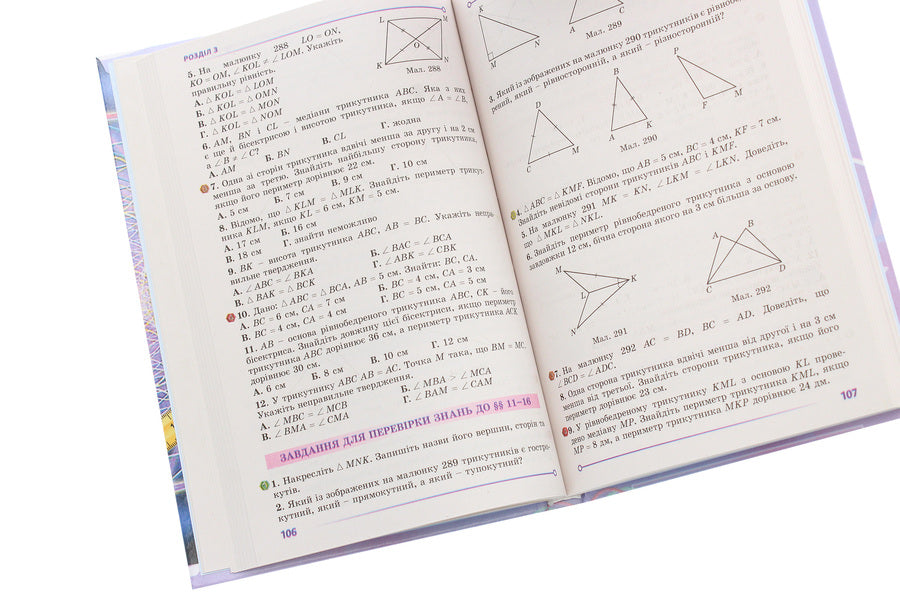 РОЗДІЛ 3
5. На малюнку 288 LO = ON,
KO = OM, ∠KOL ≠ ∠LOM. Укажіть
правильну рівність.
А. △KOL = △LOM
Б. △KOL = △OMN
В. △KOL = △MON
Г. △KOL = △NOM
L
M
O
K
N
Мал. 288
6. AM, BN і CL – медіани трикутника ABC. Яка з них
є ще й бісектрисою і висотою трикутника, якщо ∠A = ∠B,
а ∠B ≠ ∠C?
А. AM Б. BN В. CL Г. жодна
7. Одна зі сторін трикутника вдвічі менша за другу і на 2 см
менша за третю. Знайдіть найбільшу сторону трикутника,
якщо його периметр дорівнює 22 см.
А. 5 см Б. 7 см В. 9 см Г. 10 см
8. Відомо, що △KLM = △MLK. Знайдіть периметр трикут-
ника KLM, якщо KL = 6 см, KM = 5 см.
А. 17 см Б. 16 см
В. 18 см Г. знайти неможливо
9. BK – висота трикутника ABC, AB = BC. Укажіть непра-
вильне твердження.
А. ∠ABC = ∠BKA Б. ∠BAC = ∠BCA
В. △BAK = △BCK Г. ∠ABK = ∠CBK
10. Дано: △ABC = △BCA, AB = 5 см. Знайти: BC, CA.
А. BC = 6 см, CA = 7 см Б. BC = 4 см, CA = 3 см
В. BC = 4 см, CA = 4 см Г. BC = 5 см, CA = 5 см
11. AB – основа рівнобедреного трикутника ABC, CK – його
бісектриса. Знайдіть довжину цієї бісектриси, якщо периметр
трикутника ABC дорівнює 36 см, а периметр трикутника ACK
дорівнює 30 см.
А. 6 см Б. 8 см В. 10 см Г. 12 см
12. У трикутнику ABC AB = AC. Точка M така, що BM = MC.
Укажіть неправильне твердження.
А. ∠MBC = ∠MCB Б. ∠MBA > ∠MCA
В. ∠BMA = ∠CMA Г. ∠BAM = ∠CAM
ЗАВДАННЯ ДЛЯ ПЕРЕВІРКИ ЗНАНЬ ДО §§ 11–16
1. Накресліть △MNK. Запишіть назви його вершин, сторін та
кутів.
2. Який із зображених на малюнку 289 трикутників є гостро-
кутний, який – прямокутний, а який – тупокутний?
106
K
M
N
A
C
Мал. 289
3. Який із зображених на малюнку 290 трикутників є рівнобед-
рений, який – рівносторонній, а який – різносторонній?
D
C
M
B
A
K
P
F
M
Мал. 290
4. △ABC = △KMF. Відомо, що AB = 5 см, BC = 4 см, KF = 7 см.
Знайдіть невідомі сторони трикутників ABC і KMF.
5. На малюнку 291 MK = KN, ∠LKM = ∠LKN. Доведіть,
що △MKL = △NKL.
6. Знайдіть периметр рівнобедреного трикутника з основою
завдовжки 12 см, бічна сторона якого на 3 см більша за основу.
M
L
K
N
Мал. 291
A
B
C
D
Мал. 292
7. На малюнку 292 AC = BD, BC = AD. Доведіть, що
∠BCD = ∠ADC.
8. Одна сторона трикутника вдвічі менша від другої і на 3 см
менша від третьої. Знайдіть сторони трикутника, якщо його
периметр дорівнює 23 см.
9. У рівнобедреному трикутнику KML з основою KL прове-
дено медіану MP. Знайдіть периметр трикутника KML, якщо
MP = 8 дм, а периметр трикутника MKP дорівнює 24 дм.
107